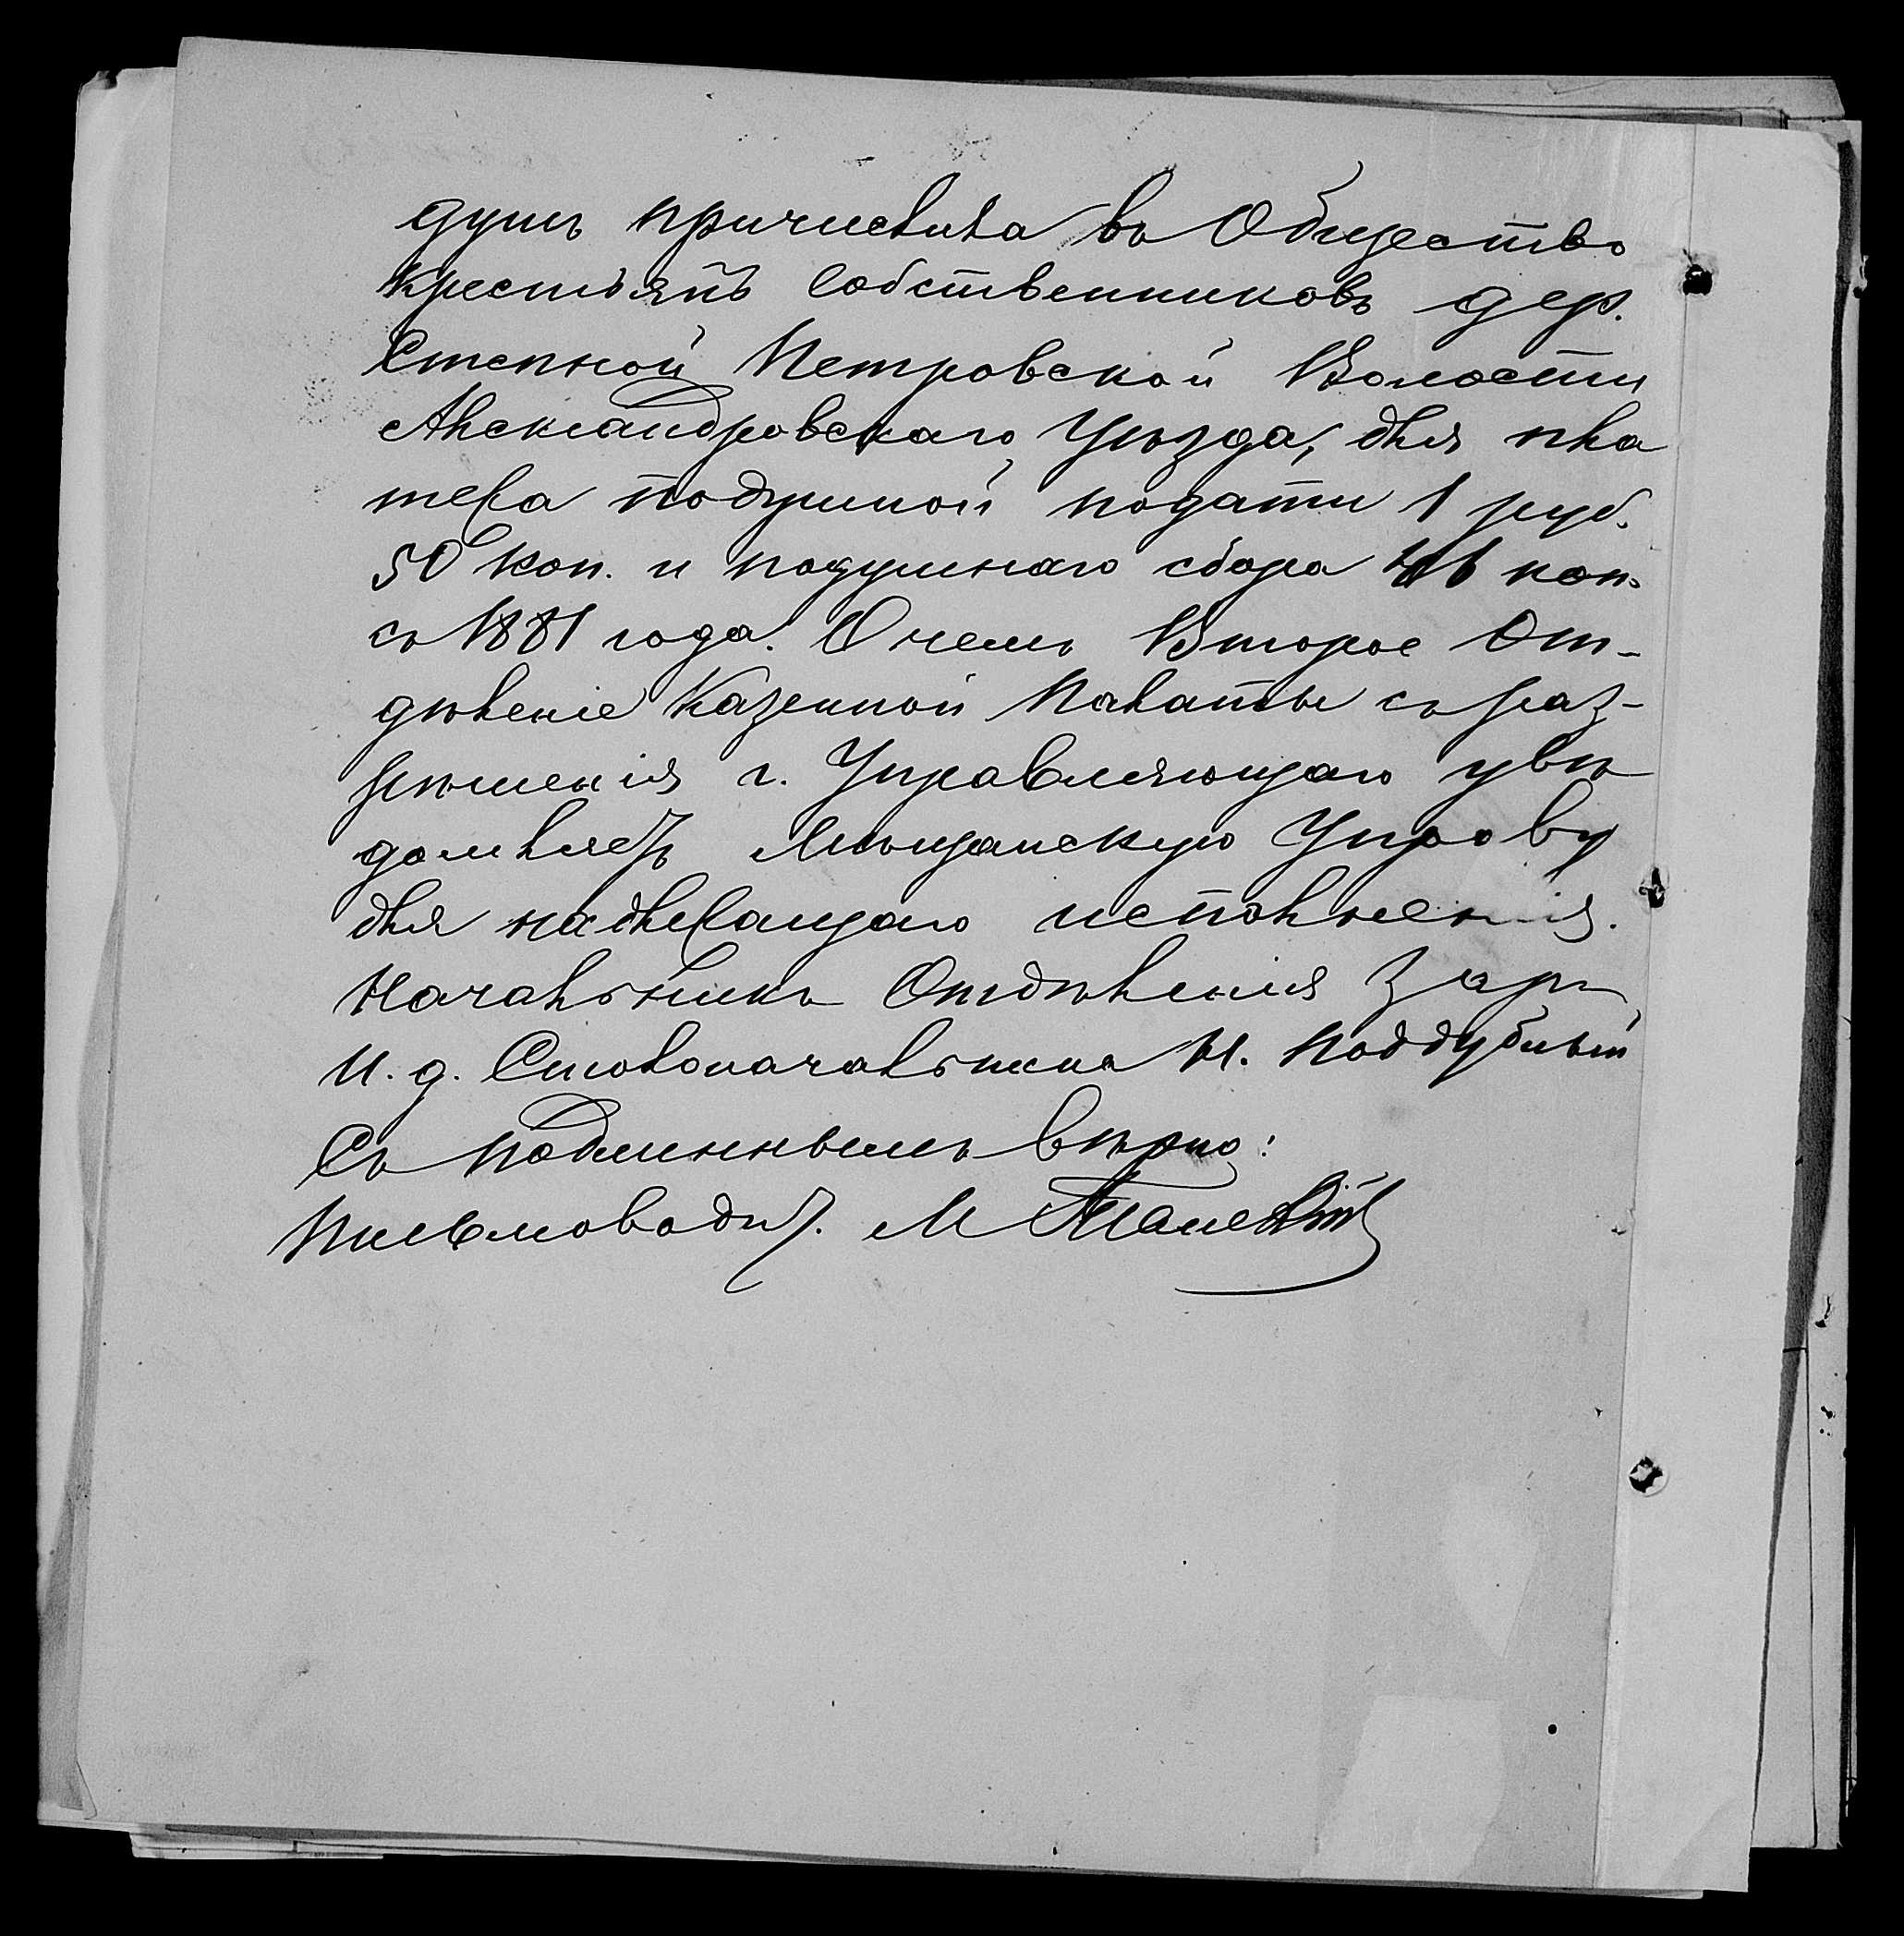 душъ причислила въ Общество
крестьянъ собственниковъ дер.
Степной Петровской Волости
Александровскаго Уѣзда, для пла
тежа подушной подати 1 руб.
50 коп. и подушнаго сбора коп.
съ 1881 года. О чемъ Второе От-
дѣленіе Казенной Палаты съ раз-
рѣшенія г. Управляющаго увѣ
домляетъ Мѣщанскую Управу
для надлежащаго исполненія.
Начальникъ Отдѣленія
И. д. Столоначальника Н. Поддубный
Съ подлиннымъ вѣрно:
Письмоводит. М